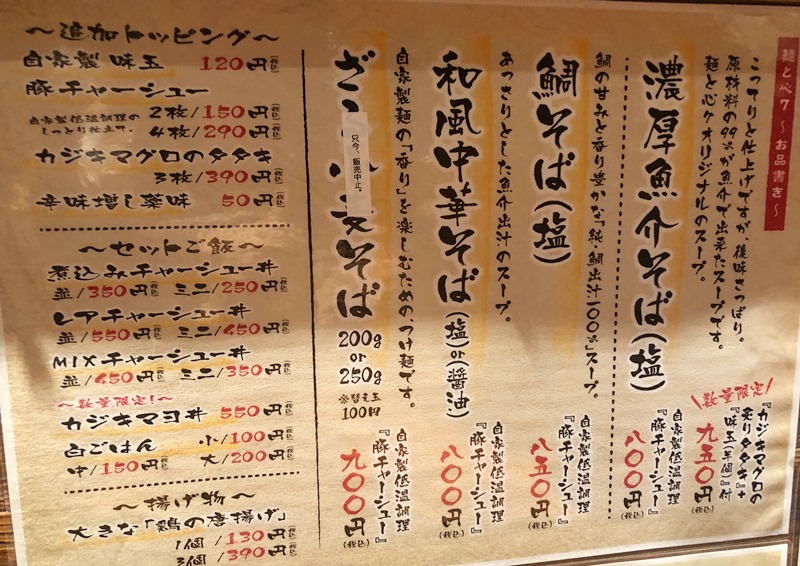 麺と心7 〜お品書き〜
こってりと仕上げですが、後味さっぱり。
原材料の99%が魚介で出来たスープです。
麺と心7オリジナルのスープ。
濃厚魚介そば(塩)
数量限定
『カジキマグロの
炙りタタキ』+
『味玉(半個)』付
九五〇円(税込)
自家製低温調理
『豚チャーシュー』
八〇〇円(税込)
鯛の甘みと香り豊かな「純・鯛出汁一〇〇%」スープ。
鯛そば(塩)
自家製低温調理
『豚チャーシュー』
八五〇円(税込)
あっさりとした魚介出汁のスープ。
和風中華そば(塩or醤油)
自家製低温調理
『豚チャーシュー』
八〇〇円(税込)
自家製麺の「香り」を楽しむための、つけ麺です。
ざ そば
只今、販売中止。
200g
or
250g
※替え玉
100円
自家製低温調理
『豚チャーシュー』
九〇〇円(税込)
〜追加トッピング〜
自家製味玉 120円(税込)
豚チャーシュー
自家製低温調理の
しっとり仕立て。
2枚/150円(税込)
4枚/290円(税込)
カジキマグロのタタキ
3枚/390円(税込)
辛味増し薬味 50円(税込)
〜セットご飯〜
煮込みチャーシュー丼
並/350円(税込) ミニ/250円(税込)
レアチャーシュー丼
並/550円(税込) ミニ/450円(税込)
MIXチャーシュー丼
並/450円(税込) ミニ/350円(税込)
〜数量限定!〜
カジキマヨ丼 550円(税込)
白ごはん 小/100円(税込)
中/150円(税込) 大/200円(税込)
〜揚げ物〜
大きな「鶏の唐揚げ」
1個/130円(税込)
3個/390円(税込)